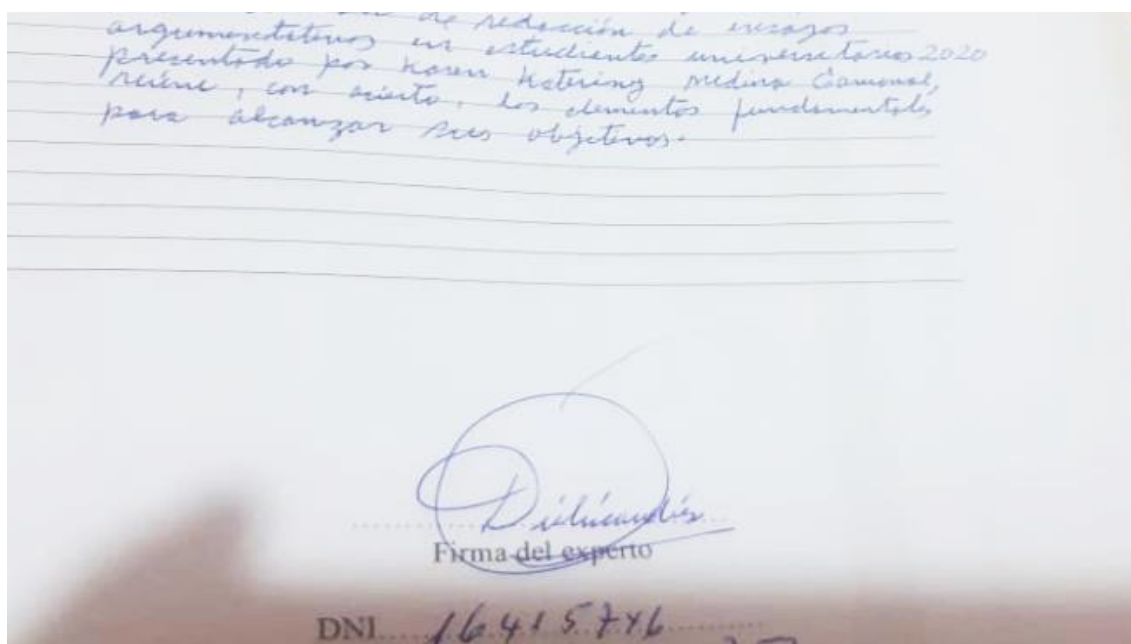 de redacción de ensayos
argumentativos en estudiantes universitarios 2020
presentado por Karen Katering Medina Carvonal,
reúne, con acierto, los elementos fundamentales
para alcanzar sus objetivos.
Firma del experto
DNI 16415746